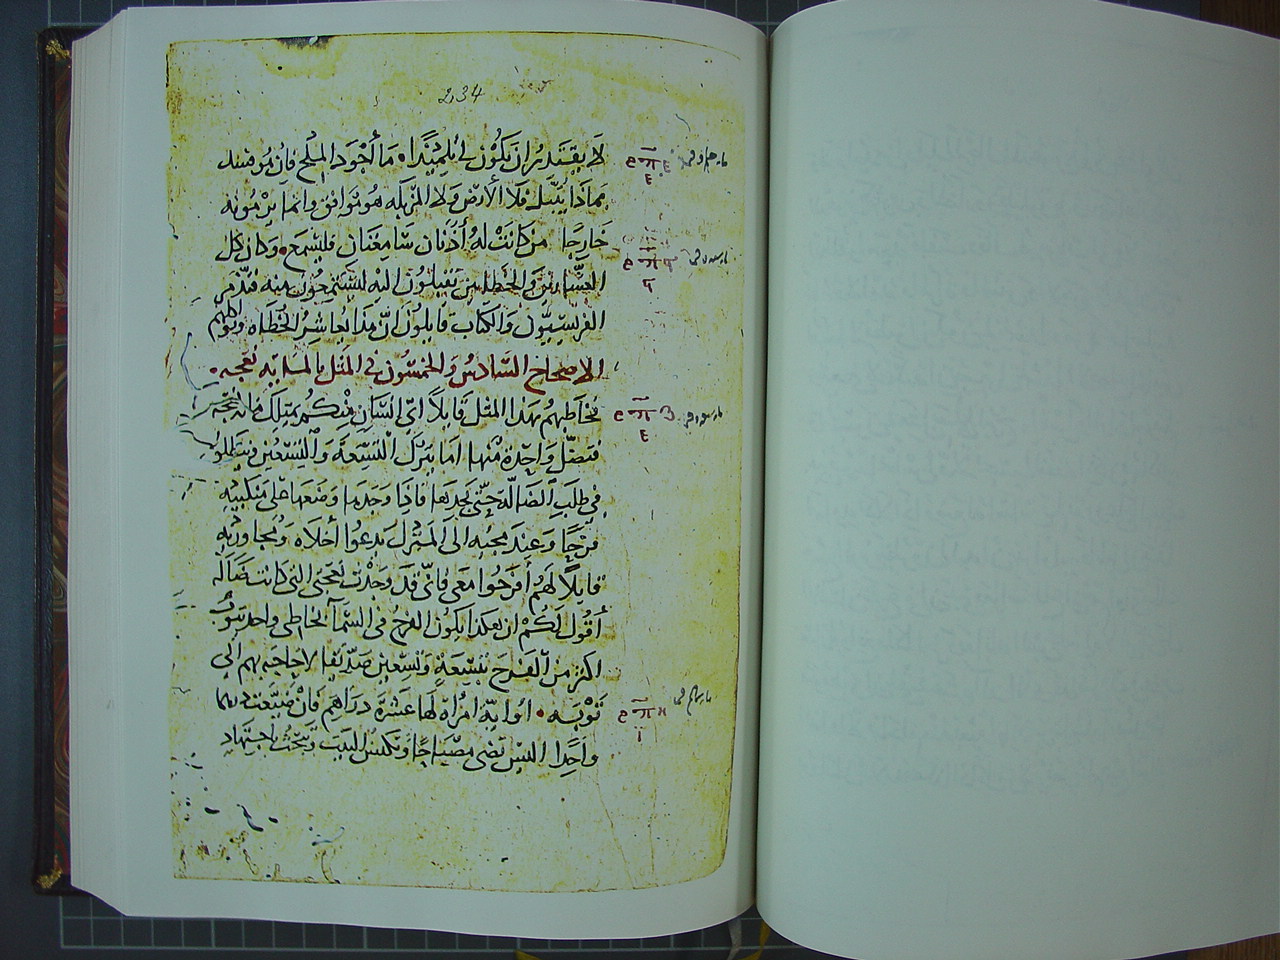 234
لَا يقتَدرُ ان يَكُون لى تلمِيْذًا • مَا أَجْوَدَ المِلْح فان هُو فسد
بماذَا يُتَبَّل فلَا الأرض وَلا المزبَله هُو يُوَافق وانما يَرْمُونه
خَارِجًا من كَانَتْ لهُ أُذُنان سَامعَتَان فليسْمَع • وكان كل
العشّارين وَالخطاه يَقبلُونَ اليْه ليسْتمعُون منه فتذَمر
الفرّيسيّون وَالكتاب قايلُون انّ هذَا يُعَاشِرُ الخُطَاه ويواكلهم
الاصحاح السَّادسُ وَالخمسُّون فى المَثل بالمايه نعجه •
فخاطبهُم بهَذا المثل قايلاً اىّ انسَانٍ مِنْكُم يمتلك مايه نعجه
فتضلّ وَاحِدة مْنها امَا يتركُ التِسْعَة وَالتِسْعِين وينطلق
فى طلَبِ الضَالّه حَتّى يجدهَا فاذَا وَجَدهَا وضَعهَا على منكبيْه
فرحًا وَعِندَ مجيْه الى المَنْزل يَدعُوا أخلاه وَمجاوريه
قايلاً لهُم أفرحُوا مَعى فانّى قدَ وَجَدْت نعجَتى التى كانت ضَاله
أقُول لكُمْ ان هكذا يكُون الفرح فى السَّمآ لخاطى واحد يتوبُ
اكثر منْ الفَرَح بتسْعَةٍ وَتسْعين صدّيقا لا حاجَة بهم الى
تَوْبَه • أوايّة امرَأه لهَا عَشرَة درَاهم فانْ ضيّعت منها
وَاحدًا اليْسَ تضى مصْبَاحًا وَتكنسُ البَيت وَتبحث باجتهاد